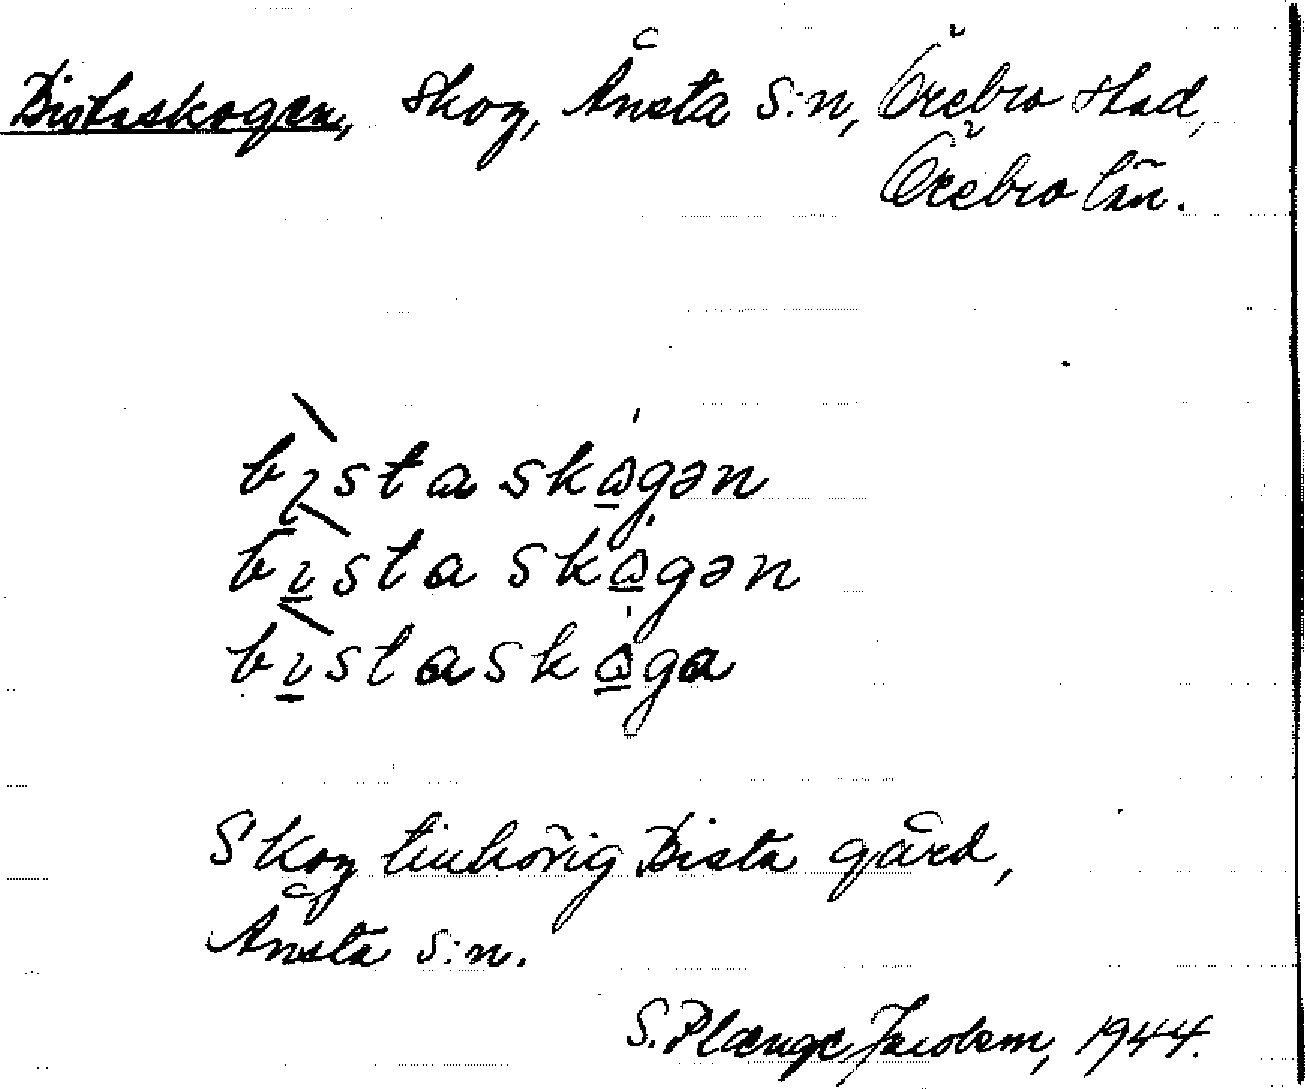 Bistaskogen, skog, Ånsta s:n, Örebro stad,
Örebro län.
bı̀staskɷ̀gən
bı̀staskɷ̀gən
bı̀staskɷ̀ga
Skog tillhörig Bista gård,
Ånsta s:n.
S. Plænge Jacobson, 1944.